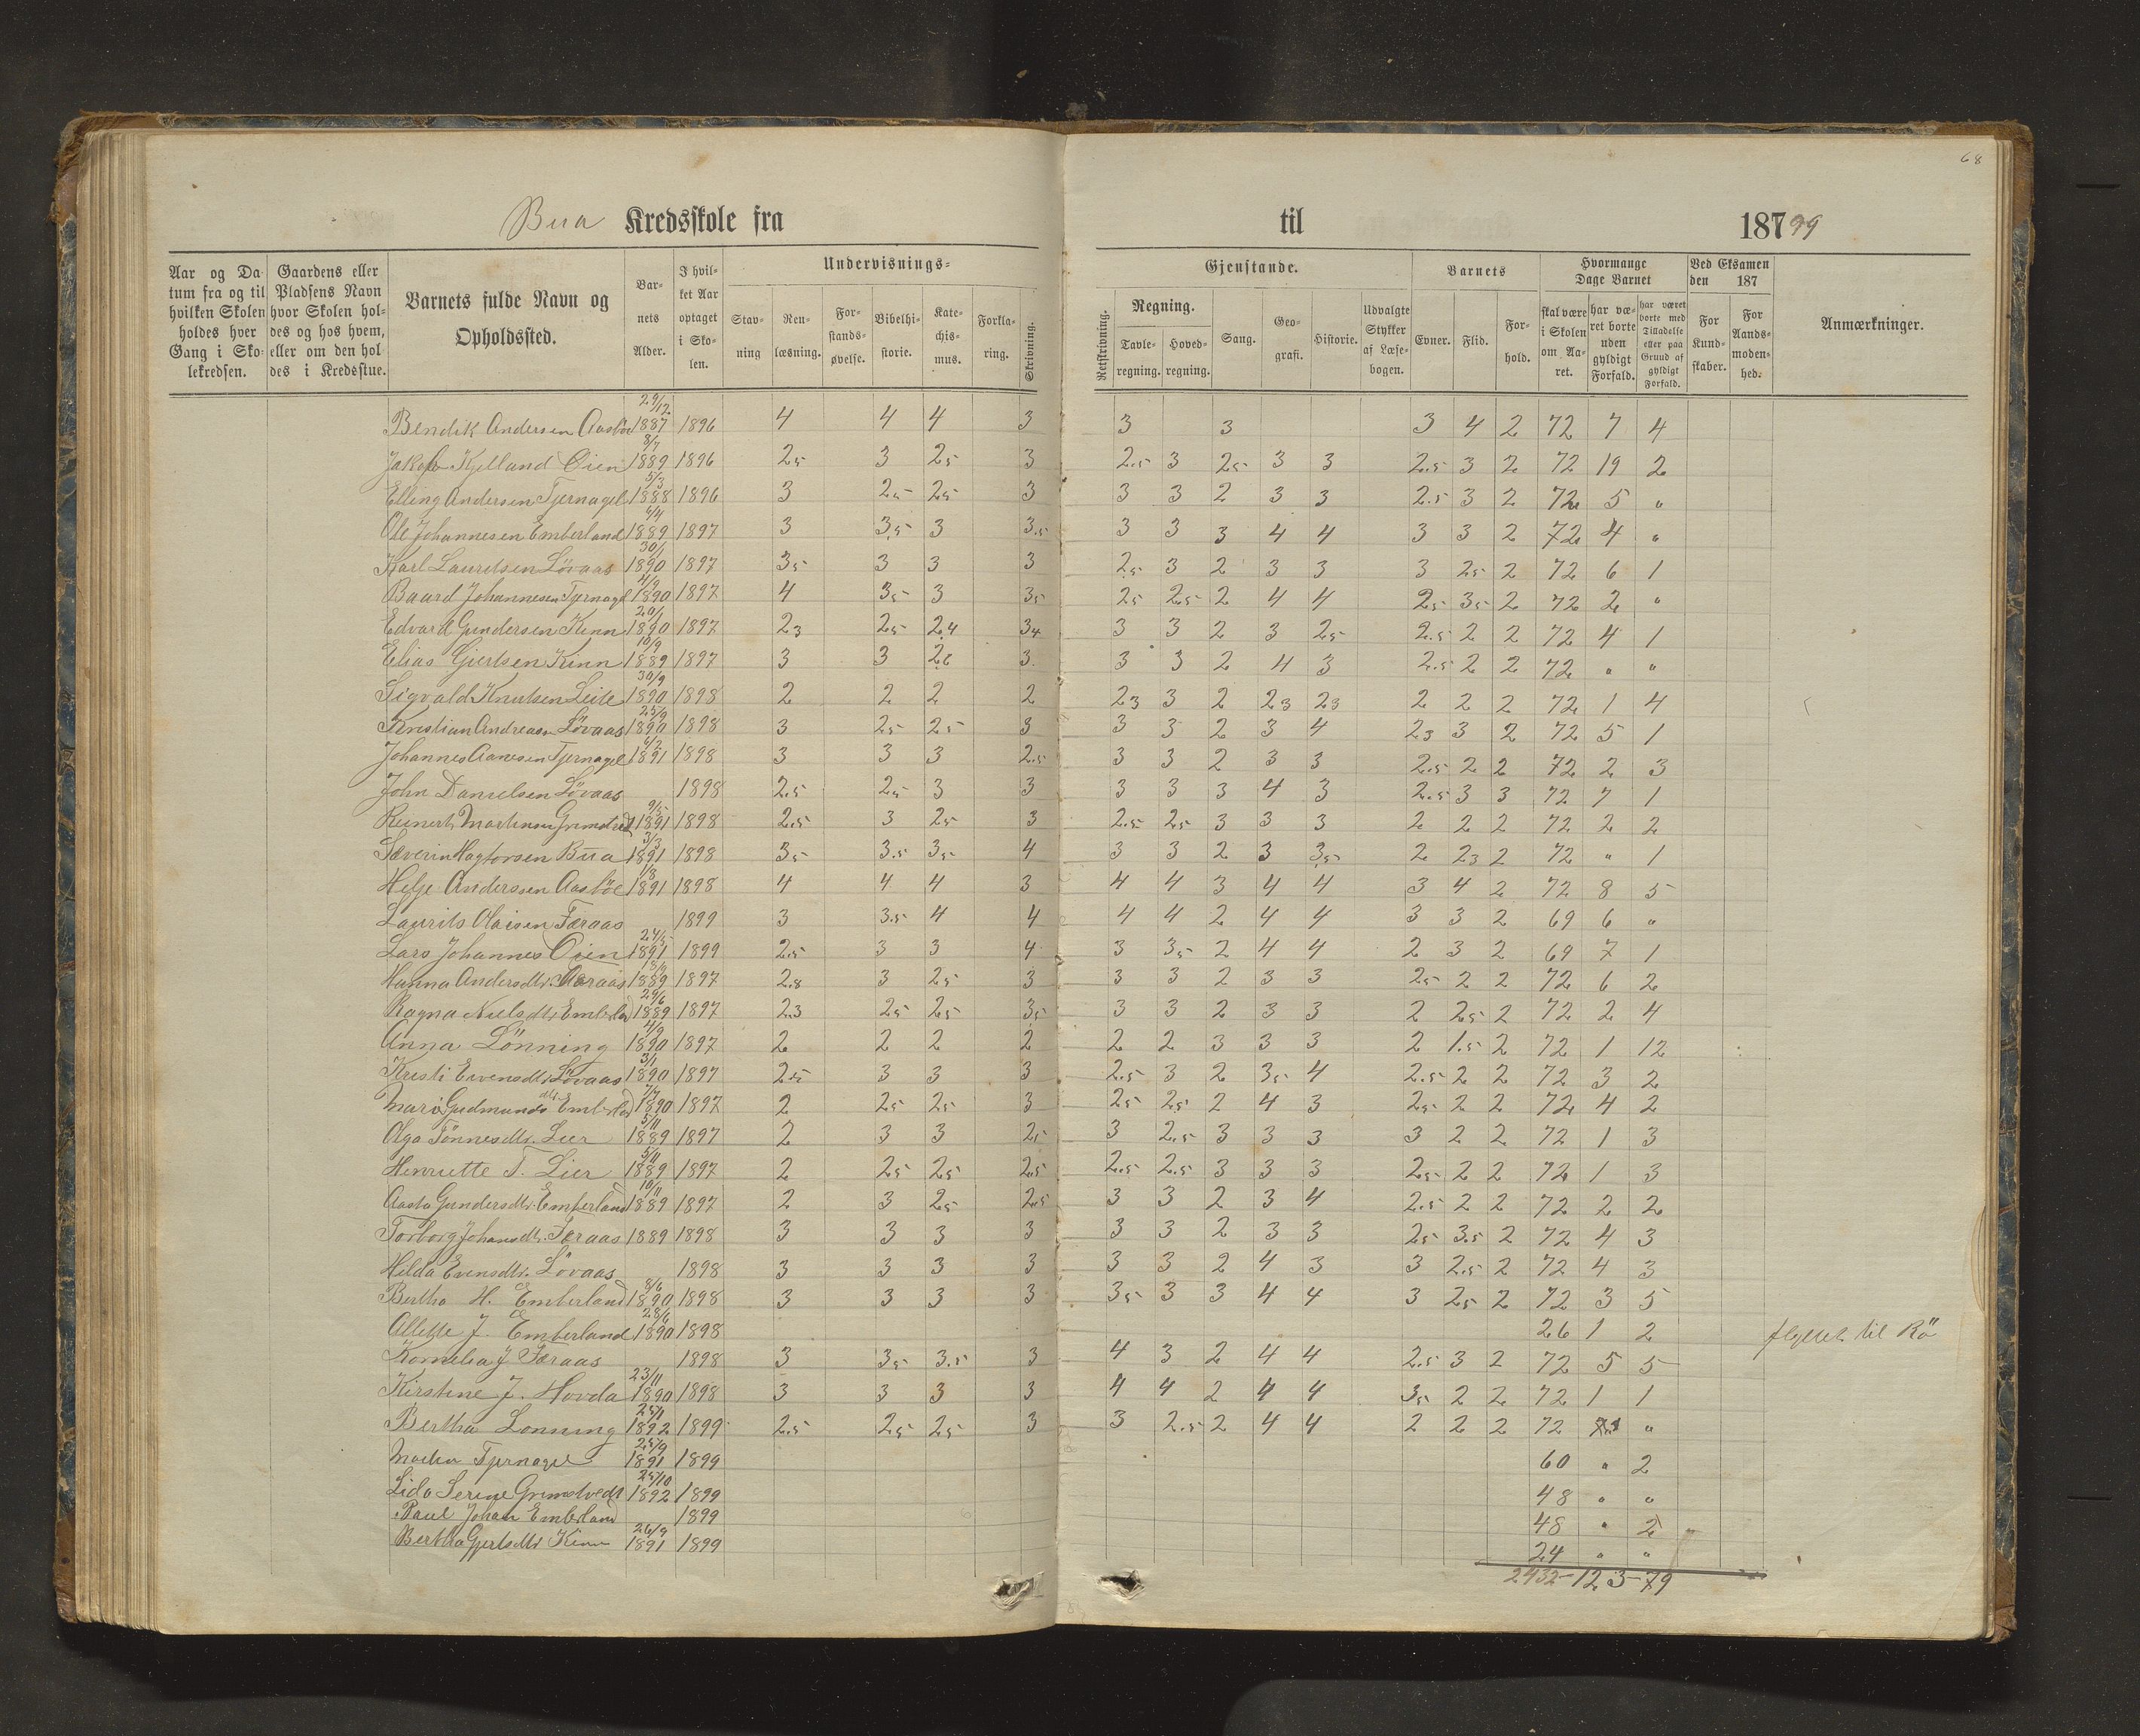 68
Bua Kredsskole fra til 187 99
Aar og Datum fra og til hvilken Skolen holdes hver Gang i Skolekredsen.
Gaardens eller Pladsens Navn hvor Skolen holdes og hos hvem, eller om den holdes i Kredsstue.
Barnets fulde Navn og Opholdssted.
Barnets Alder.
I hvilket Aar optaget i Skolen.
Undervisnings-
Stavning
Renlæsning.
Forstandsøvelse.
Bibelhistorie.
Katechismus.
Forklaring.
Skrivning.
Gjenstande.
Retskrivning.
Regning.
Tavleregning.
Hovedregning.
Sang.
Geografi.
Historie.
Udvalgte Stykker af Læsebogen.
Barnets
Evner.
Flid.
Forhold.
Hvormange Dage Barnet
skal være i Skolen om Aaret.
har været borte uden gyldigt Forfald.
har været borte med Tilladelse eller paa Grund af gyldigt Forfald.
Ved Eksamen den 187
For Kundskaber.
For Aandsmodenhed.
Anmærkninger.
Bendik Andersen Aasböe 29/12 1887 1896 4 4 4 3 3 3 3 4 2 72 7 4
Jakob Kjelland Öien 8/7 1889 1896 2.5 3 2.5 3 2.5 3 2.5 3 3 2.5 3 2 72 19 2
Elling Andersen Tjernagel 5/3 1888 1896 3 2.5 2.5 3 3 3 2 3 3 2.5 3 2 72 5 "
Ole Johannesen Emberland 6/11 1889 1897 3 3.5 3 3.5 3 3 3 4 4 3 3 2 72 4 "
Karl Lauritsen Lövaas 30/1 1890 1897 3.5 3 3 3 2.5 3 2 3 3 3 2.5 2 72 6 1
Baard Johannesen Tjernagel 4/9 1890 1897 4 3.5 3 3.5 2.5 2.5 2 4 4 2.5 3.5 2 72 2 "
Edvard Gundersen Kinn 20/1 1890 1897 2.3 2.5 2.4 3.4 3 3 2 3 2.5 2.5 2 2 72 4 1
Elias Gjertsen Kinn 10/9 1889 1897 3 3 2.6 3 3 3 2 4 3 2.5 2 2 72 " "
Sigvald Knutsen Leite 30/9 1890 1898 2 2 2 2 2.3 3 2 2.3 2.3 2 2 2 72 1 4
Kristian Andreasen Lövaas 25/9 1890 1898 3 2.5 2.5 3 3 3 2 3 4 2.3 3 2 72 5 1
Johannes Aanesen Tjernagel 6/2 1891 1898 3 3 3 2.5 3 3 2 3 3 2.5 2 2 72 2 3
John Danielsen Lövaas 1898 2.5 2.5 3 3 3 3 3 4 3 2.5 3 3 72 7 1
Reinert Martinsen Grimstvedt 9/5 1891 1898 2.5 3 2.5 3 2.5 2.5 3 3 3 2 2 2 72 2 2
Severin Hagtorsen Bua 3/3 1891 1898 3.5 3.5 3.5 4 3 3 2 3 3.5 2 2.3 2 72 " 1
Helje Anderssen Aasböe 1/8 1891 1898 4 4 4 3 4 4 3 4 4 3 4 2 72 8 5
Laurits Olaisen Færaas 1899 3 3.5 4 4 4 4 2 4 4 3 3 2 69 6 "
Lars Johannes Öien 24/5 1891 1899 2.5 3 3 4 3 3.5 2 4 4 2 3 2 69 7 1
Hanna Andersdtr. 1889 1897 2.8 3 2.5 3 3 3 2 3 3 2.5 2 2 72 6 2
Ragna Nielsdtr. Emberland 29/6 1889 1897 2.3 2.5 2.5 3.5 3 3 2 3 3 2 2.5 2 72 2 4
Anna Lönning 4/9 1890 1897 2 2 2 2 2 2 3 3 3 2 1.5 2 72 1 12
Kristi Evensdtr. Lövaas 3/1 1890 1897 2.5 3 3 3 2.5 3 2 3.5 4 2.5 2 2 72 3 2
Mari Gudmundsdtr. Emberland 7/7 1890 1897 2 2.5 2.5 3 2.5 2.5 2 4 3 2.5 2 2 72 4 2
Olga Tönnesdtr. Lier 5/11 1889 1897 2 3 3 2.5 3 2.5 3 3 3 3 2 2 72 1 3
Henriette T. Lier 5/11 1889 1897 2 2.5 2.5 2.5 2.5 2.5 3 3 3 2.5 2 2 72 1 3
Aasta Gundersdtr. Emberland 10/11 1889 1897 2 3 2.5 2.5 3 3 2 3 4 2.5 2 2 72 2 2
Torborg Johansdtr. Færaas 1889 1898 3 3 3 3 3 3 2 3 3 2.5 3.5 2 72 4 3
Hilda Evensdtr. Lövaas 1898 3 3 3 3 3 3 2 4 3 3 2.5 2 72 4 3
Bertha H. Emberland 8/6 1890 1898 3 3 3 3 3.5 3 3 4 4 3 2.5 2 72 3 5
Allette J. Emberland 28/6 1890 1898 26 1 2 flyttet til Rö
Kornelia J Færaas 1898 3 3.5 3.5 3 4 3 2 4 4 2.5 3 2 72 5 5
Kirstine J. Hovda 23/11 1890 1898 3 3 3 3 4 4 2 4 4 3.5 2 2 72 1 1
Bertha Lonning 25/1 1892 1899 2.5 2.5 2.5 3 3 2.5 2 4 4 2 2 2 72 1 "
Tjernagel 25/9 1891 1899 60 " 2
Lida Serine Grimstvedt 25/10 1892 1899 48 " "
Paul Johan Emberland 1899 48 " 2
Bertha Gjertsdtr Kinn 26/9 1891 1899 24 " "
2432 - 123 - 79